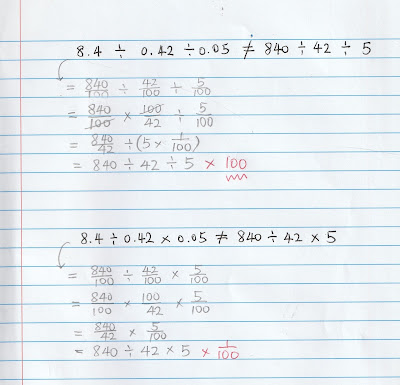 8.4 ÷ 0.42 ÷ 0.05 ≠ 840 ÷ 42 ÷ 5
= 840/100 ÷ 42/100 ÷ 5/100
= 840/100 × 100/42 ÷ 5/100
= 840/42 ÷ (5 × 1/100)
= 840 ÷ 42 ÷ 5 × 100
8.4 ÷ 0.42 × 0.05 ≠ 840 ÷ 42 × 5
= 840/100 ÷ 42/100 × 5/100
= 840/100 × 100/42 × 5/100
= 840/42 × 5/100
= 840 ÷ 42 × 5 × 1/100